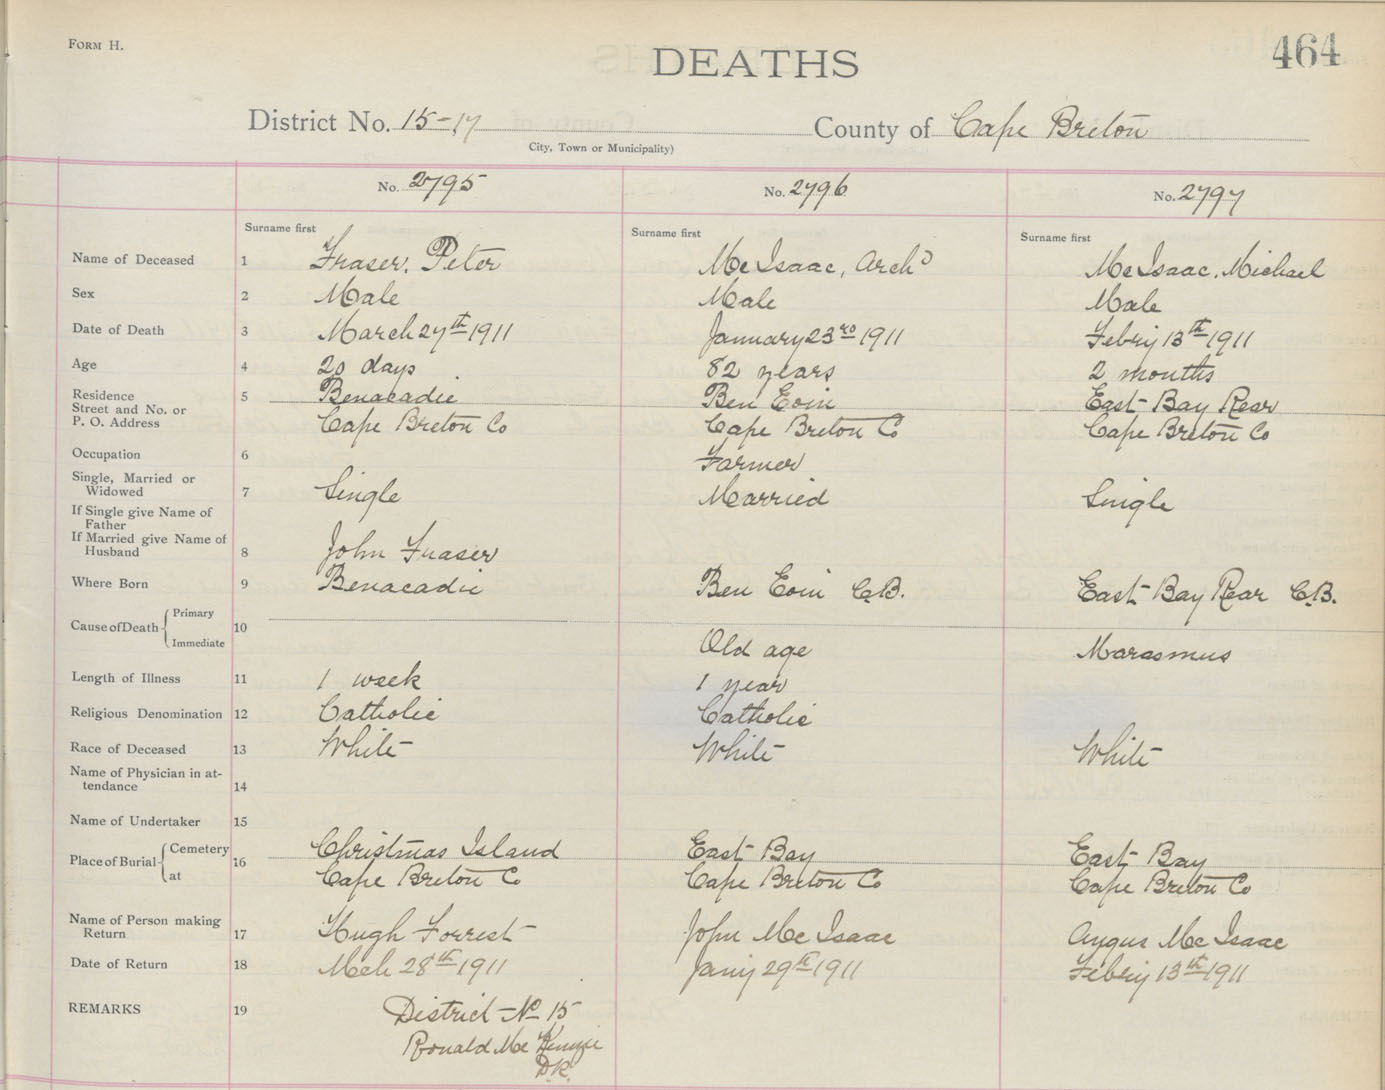 FORM H.
DEATHS
464
District No. 15-17 County of Cape Breton
City, Town or Municipality)
No. 2795 No. 2796 No. 2797
Surname first Surname first Surname first
Name of Deceased 1 Fraser, Peter McIsaac, Archd McIsaac, Michael
Sex 2 Male Male Male
Date of Death 3 March 27th 1911 January 23rd 1911 Febry 13th 1911
Age 4 20 days 82 years 2 months
Residence 5 Benacadie Ben Eoin East Bay Rear
Street and No. or
P. O. Address Cape Breton Co Cape Breton Co Cape Breton Co
Occupation 6 Farmer
Single, Married or
Widowed 7 Single Married Single
If Single give Name of
Father
If Married give Name of
Husband 8 John Fraser
Where Born 9 Benacadie Ben Eoin C.B. East Bay Rear C.B.
Cause of Death Primary
10
Immediate Old age Marasmus
Length of Illness 11 1 week 1 year
Religious Denomination 12 Catholic Catholic
Race of Deceased 13 White White White
Name of Physician in at-
tendance 14
Name of Undertaker 15
Place of Burial Cemetery 16 Christmas Island East Bay East Bay
at Cape Breton Co Cape Breton Co Cape Breton Co
Name of Person making
Return 17 Hugh Forrest John McIsaac Angus McIsaac
Date of Return 18 Mch 28th 1911 Jany 29th 1911 Febry 13th 1911
REMARKS 19 District No 15
Ronald McKenzie
D.R.